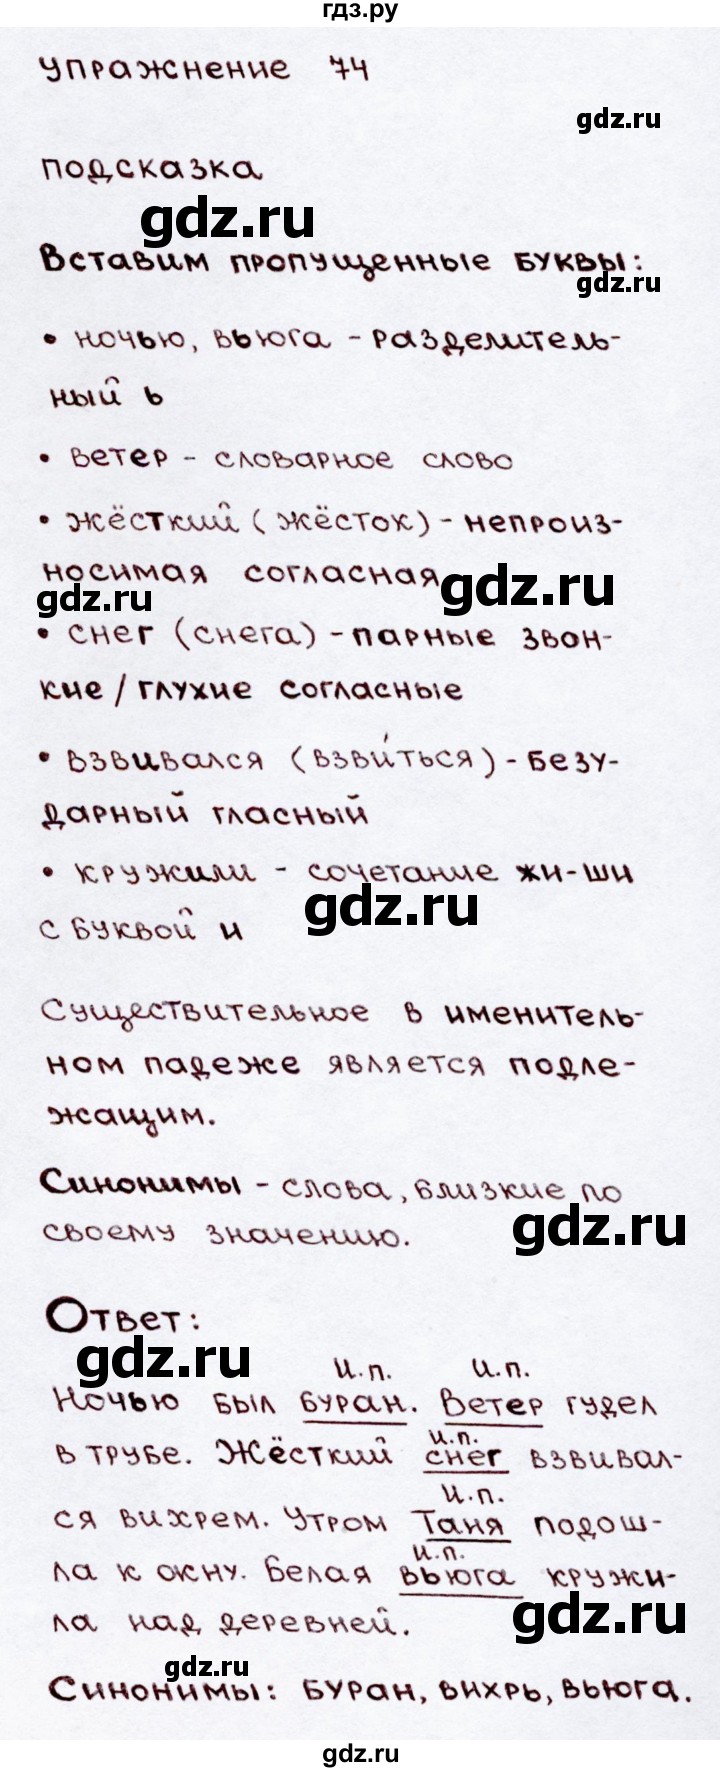 гдз.ру
упражнение 74
gdz.ru
подсказка
gdz.ru
Вставим пропущенные буквы:
gdz.ru
• ночью, вьюга - разделитель-
ный ь
• ветер - словарное слово
• жёсткий (жёсток) - непроиз-
носимая согласная
gdz.ru
gdz.ru
• снег (снега) - парные звон-
кие / глухие согласные
• взвивался (взви́ться) - безу-
дарный гласный
• кружили - сочетание жи-ши
gdz.ru
с буквой и
Существительное в именитель-
ном падеже является подле-
жащим.
Синонимы - слова, близкие по
gdz.ru
своему значению.
Ответ:
gdz.ru
и.п. и.п.
Ночью был буран. Ветер гудел
и.п.
в трубе. Жёсткий снег взвивал-
и.п.
ся вихрем. Утром Таня подош-
и.п.
ла к окну. Белая вьюга кружи-
gdz.ru
ла над деревней.
gdz.ru
Синонимы: буран, вихрь, вьюга.
gdz.ru